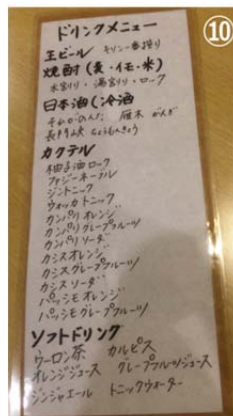 ⑩
ドリンクメニュー
王ビール キリン一番搾り
焼酎(麦・イモ・米)
水割り・湯割り・ロック
日本酒(冷酒
雁木 がんぎ
長門峡 ちょうもんきょう
カクテル
柚子酒ロック
ファジーネーブル
ジントニック
ウォッカトニック
カンパリオレンジ
カンパリグレープフルーツ
カンパリソーダ
カシスオレンジ
カシスグレープフルーツ
カシスソーダ
パッシモオレンジ
パッシモグレープフルーツ
ソフトドリング
ウーロン茶 カルピス
オレンジジュース グレープフルーツジュース
ジンジャエール トニックウォーター